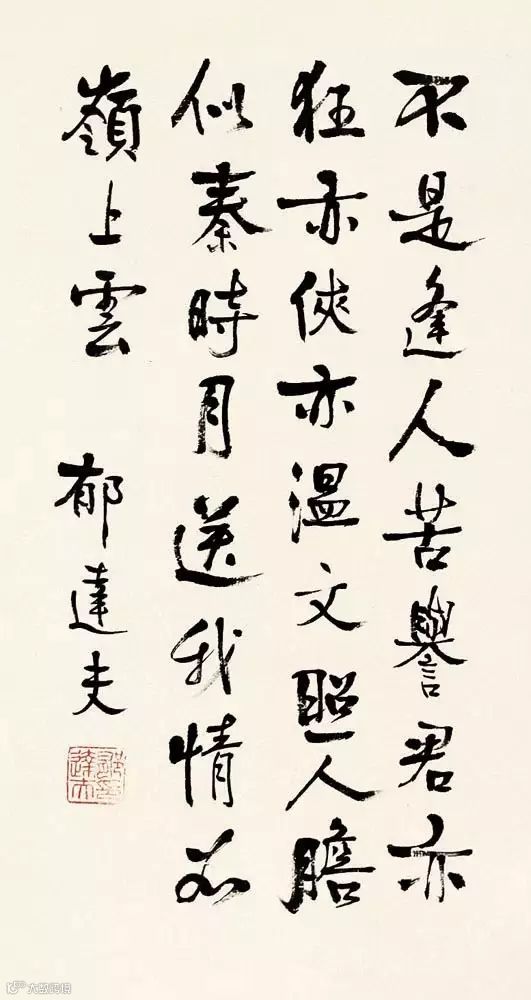 不是逢人苦譽君亦
狂亦俠亦温文照人膽
似秦時月送我情如
嶺上雲
郁達夫
大数跨境